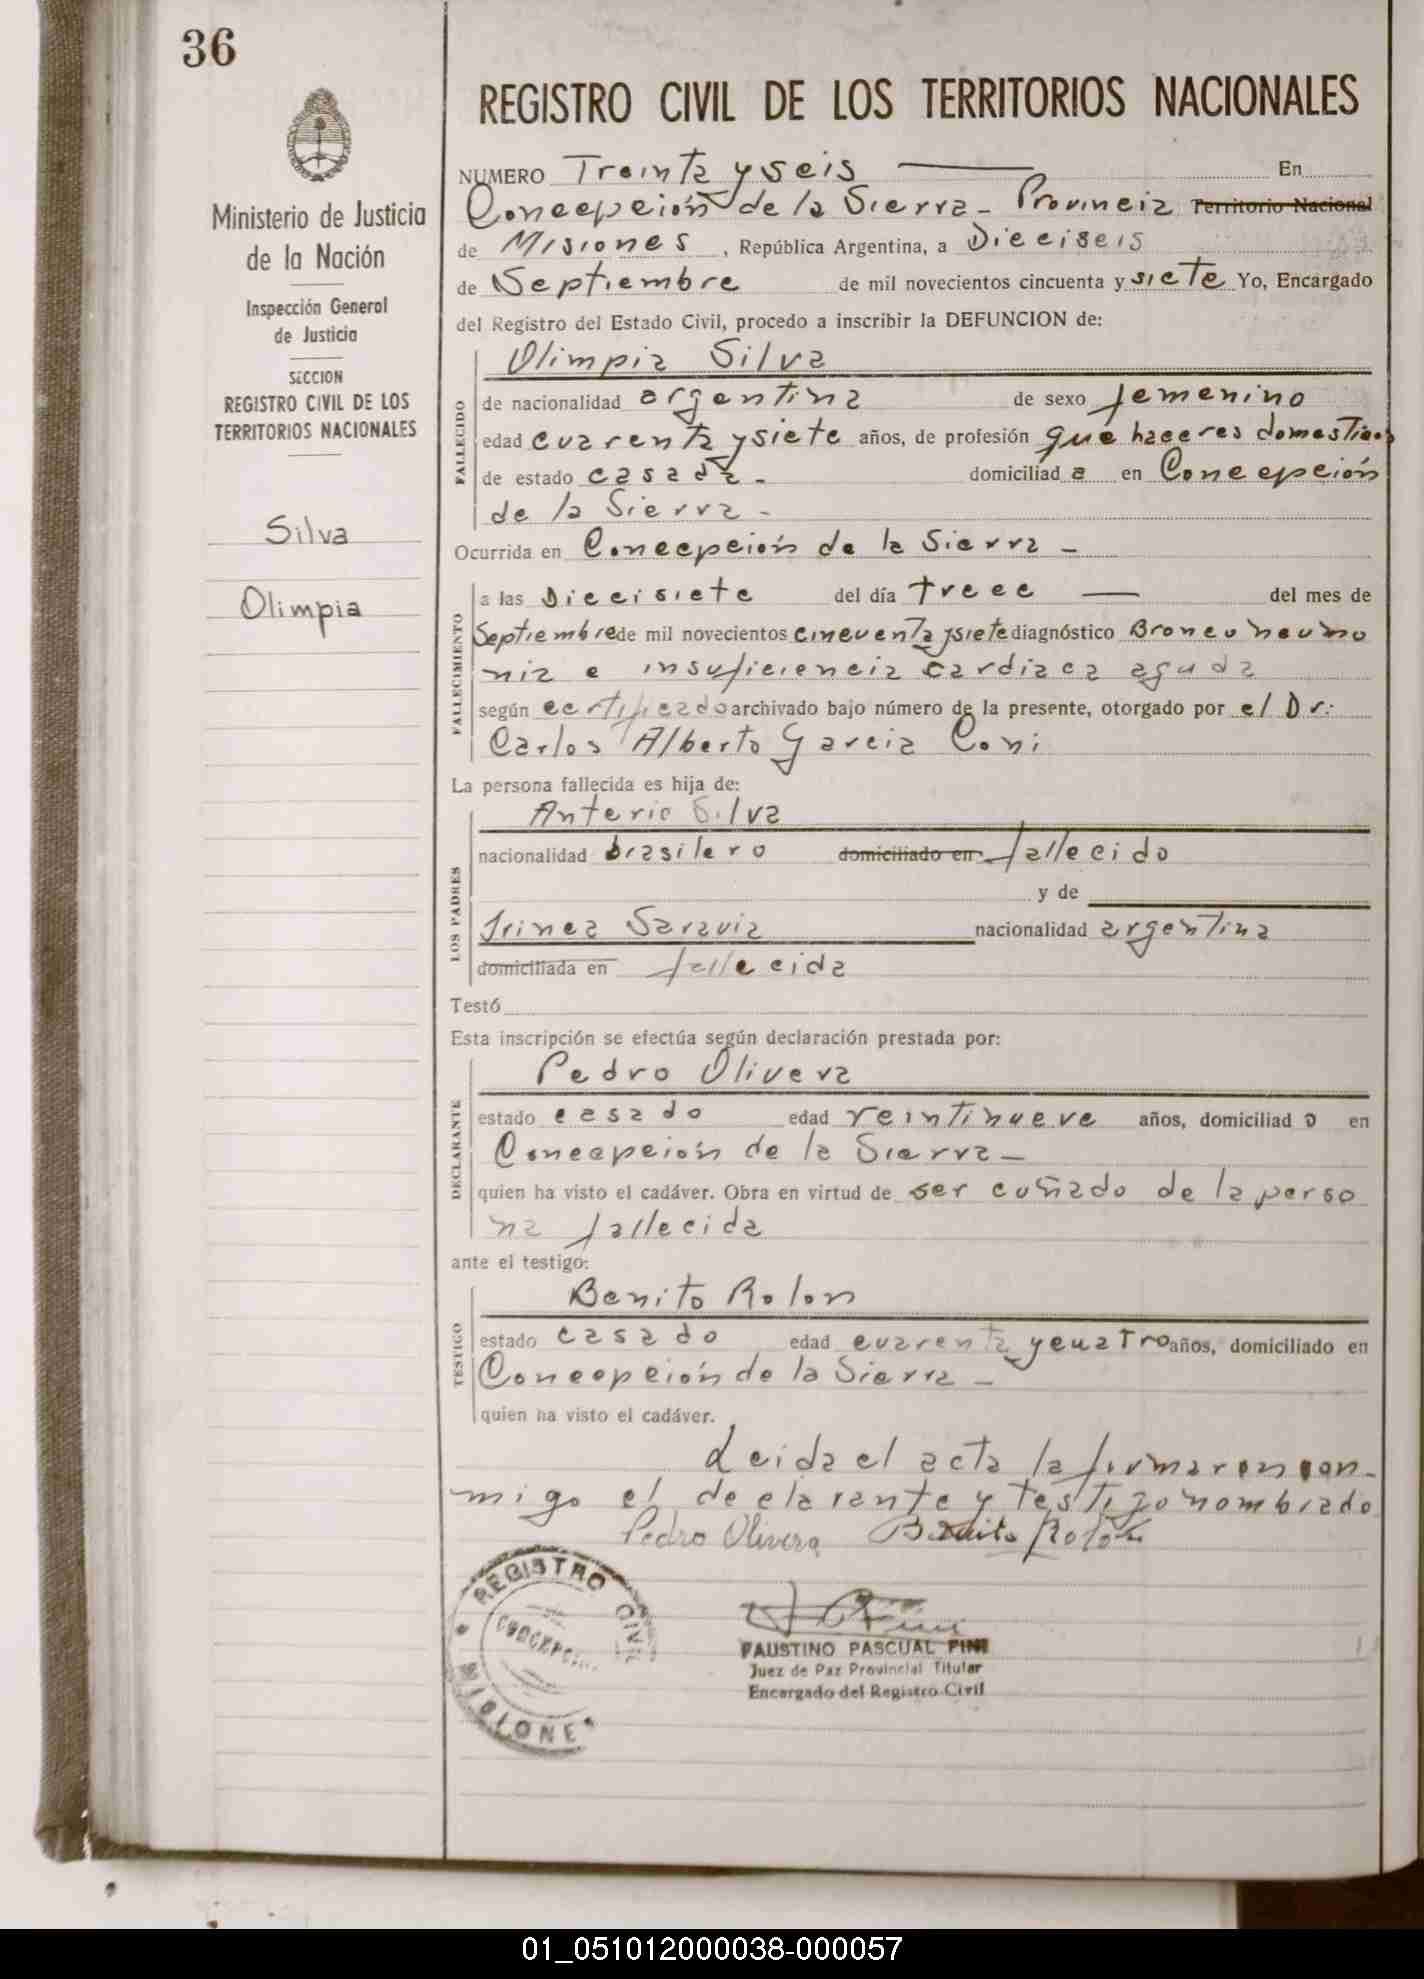 36
Ministerio de Justicia
de la Nación
Inspección General
de Justicia
SECCION
REGISTRO CIVIL DE LOS
TERRITORIOS NACIONALES
Silva
Olimpia
REGISTRO CIVIL DE LOS TERRITORIOS NACIONALES
NUMERO Treinta y seis En
Concepción de la Sierra - Provincia Territorio Nacional
de Misiones, República Argentina, a Dieciseis
de Septiembre de mil novecientos cincuenta y siete Yo, Encargado
del Registro del Estado Civil, procedo a inscribir la DEFUNCION de:
FALLECIDO
Olimpia Silva
de nacionalidad argentina de sexo femenino
edad cuarenta y siete años, de profesión que haceres domesticos
de estado casada - domiciliad a en Concepción
de la Sierra -
Ocurrida en Concepción de la Sierra -
FALLECIMIENTO
a las Diecisiete del día trece — del mes de
Septiembre de mil novecientos cincuenta y siete diagnóstico Bronconeumo
nia e insuficiencia cardiaca aguda
según certificado archivado bajo número de la presente, otorgado por el Dr:
Carlos Alberto Garcia Coni
La persona fallecida es hija de:
LOS PADRES
Anterio Silva
nacionalidad brasilero domiciliado en fallecido
y de
Irinea Saravia nacionalidad argentina
domiciliada en fallecida
Testó
Esta inscripción se efectúa según declaración prestada por:
DECLARANTE
Pedro Olivera
estado casado edad veintinueve años, domiciliad o en
Concepción de la Sierra -
quien ha visto el cadáver. Obra en virtud de ser cuñado de la perso
na fallecida
ante el testigo:
TESTIGO
Benito Rolon
estado casado edad cuarenta y cuatro años, domiciliado en
Concepción de la Sierra -
quien ha visto el cadáver.
Leida el acta la firmaron con-
migo el declarante y testigo nombrado
Pedro Olivera Benito Rolón
REGISTRO CIVIL
MISIONE
FAUSTINO PASCUAL FINI
Juez de Paz Provincial Titular
Encargado del Registro Civil
01_051012000038-000057